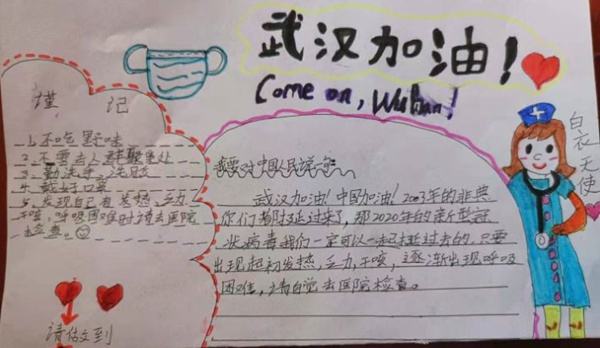 武汉加油！
Come on, Wuhan!
谨记
1、不吃野味
2、不要去人群聚集处
3、勤洗手、洗
4、戴好口罩
5、发现自己有发热，乏力
干咳，呼吸困难时请去医院
检查。
请做到
我要对中国人民说一
武汉加油！中国加油！2003年的非典
你们都挺过来了，那2020年的新型冠
状病毒我们一定可以一起挺过去的，只要
出现起初发热，乏力，干咳，逐渐出现呼吸
困难，请自觉去医院检查。
白衣天使